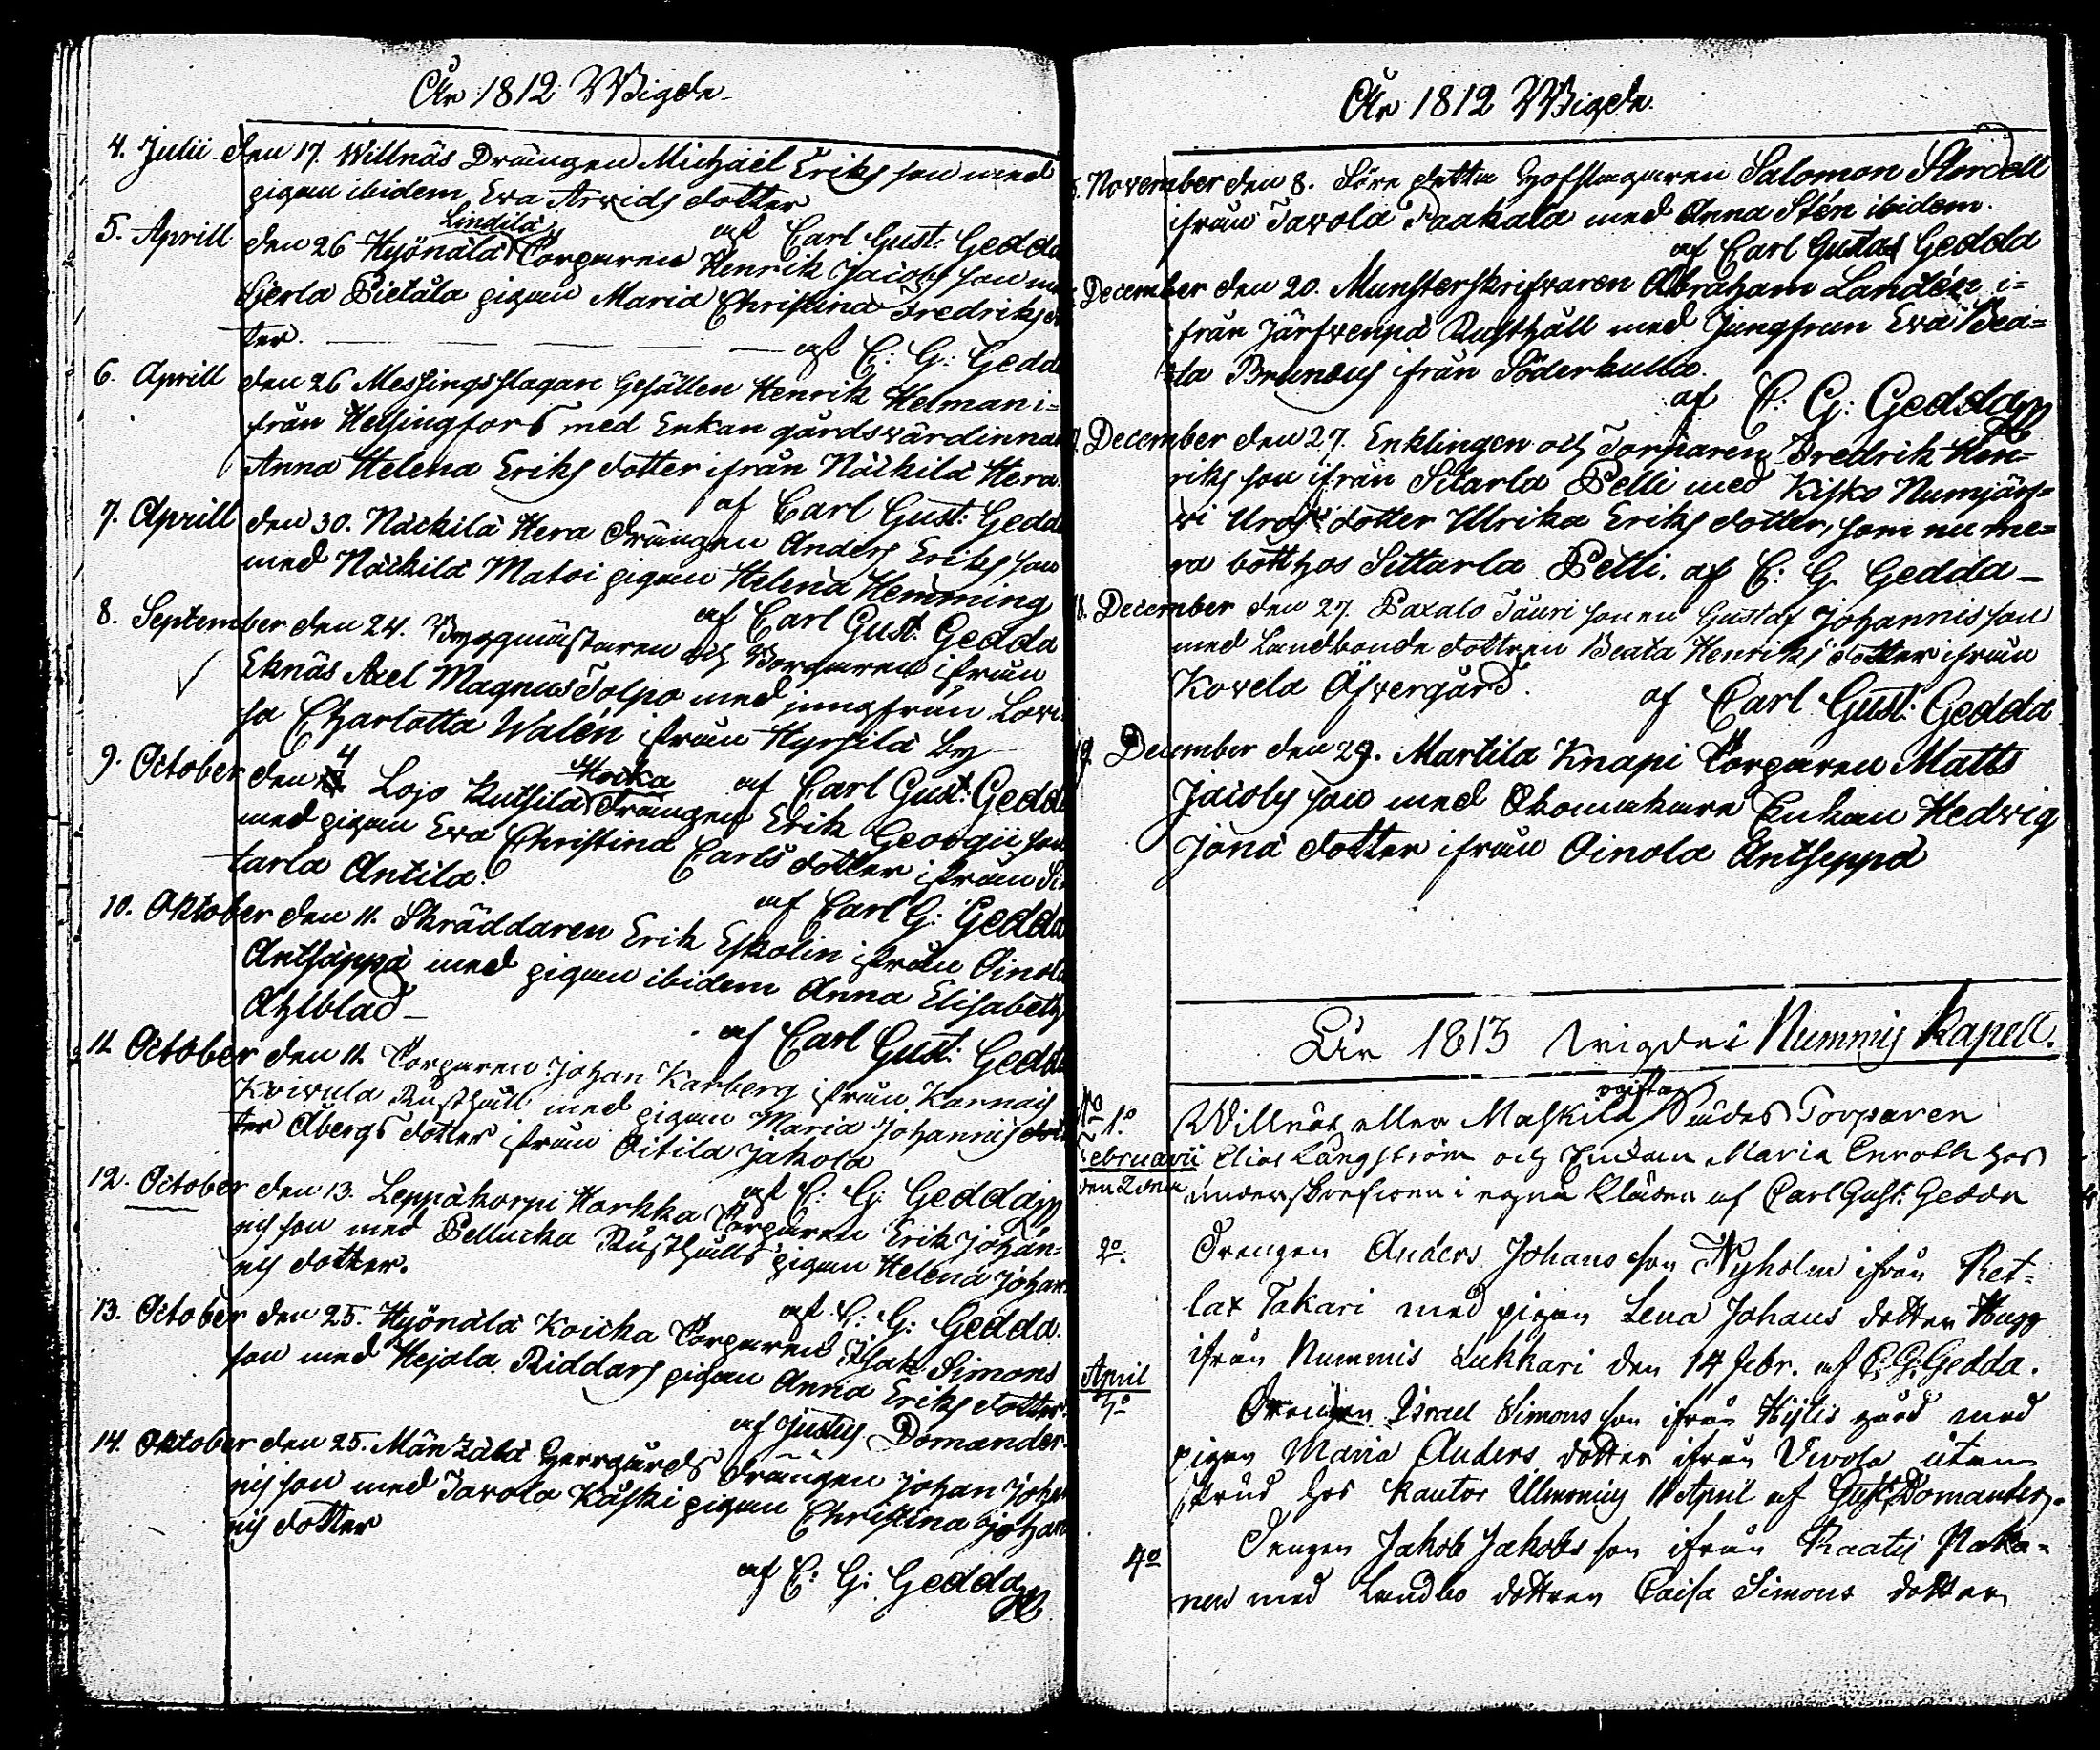 År 1812 Wigde
4. Julii den 17. Willnäs Drängen Michaël Eriks son med
pigan ibidem Ewa Arvids dotter
af Carl Gust: Gedda
5. Aprill den 26 Hyönälä Lindilä Torparen Henrik Jacobs son med
Gerla Pietälä pigan Maria Christina Fredriks d
ter. af C: G: Gedda
6. Aprill den 26 Messingsslagare Gesällen Henrik Helman i=
från Helsingfors med Enkan gårdswärdinnan
Anna Helena Eriks dotter ifrån Näckilä Hera.
af Carl Gust: Gedda
7. Aprill den 30. Näckilä Hera drängen Anders Eriks son
med Näckilä Matoi pigan Helena Hemming
af Carl Gust: Gedda
8. September den 24. Byggmästaren och Borgaren ifrån
Eknäs Axel Magnus Tolpo med jungfrun Lovi
sa Charlotta Walén ifrån Hyrsilä by
af Carl Gust: Gedda
9. October den 4 Lojo Kutsila Horka drängen Erik Georgii son
med pigan Ewa Christina Carls dotter ifrån Si
tarla Antila.
af Carl G: Gedda
10. Oktober den 11. Skräddaren Erik Eskolin ifrån Oinola
Antsäppä med pigan ibidem Anna Elisabeth
Ahlblad
af Carl Gust: Gedda
11. October den 11. Torparen Johan Karberg ifrån Karnais
Koivula Rusthåll med pigan Maria Johannis dot
ter Åbergs dotter ifrån Oitila Jakola
af C: G: Gedda
12. October den 13. Leppäkorpi Horkka Torparen Erik Johan=
nis son med Pellucka Rusthålls pigan Helena Johan
nis dotter.
af C: G: Gedda.
13. October den 25. Hyönälä Koicka Torparen Isak Simons
son med Hejala Riddars pigan Anna Eriks dotter.
af Justus Domander.
14. Oktober den 25. Mänzälä Herrgårds drängen Johan Joha
nis son med Tavola Käski pigan Christina Johan
nis dotter
af C: G: Gedda
År 1812 Wigde.
November den 8. Före detta Hofslagaren Salomon Stordell
ifrån Tavola Paakala med Anna Stén ibidem.
af Carl Gustaf Gedda
December den 20. Munsterskrifvaren Abraham Landén i=
från Järfvenpä Rusthåll med Jungfrun Ewa Bea=
ta Brunous ifrån Söderkulla.
af C: G: Gedda
December den 27. Enklingen och Torparen Fredrik Hen=
riks son ifrån Sitarla Pelli med Kisko Numjärf=
wi dotter Ulrika Eriks dotter, som nu me=
ra bott hos Sittarla Pelli. af C: G. Gedda
18. December den 27. Paxalo Tauri sonen Gustaf Johannis son
med Landbonde dottren Beata Henriks dotter ifrån
Kovela Öfvergård.
af Carl Gust: Gedda
19. December den 29. Martila Knapi Torparen Matts
Jacobs son med Skomakare Enkan Hedvig
Jona dotter ifrån Oinola Antseppä
År 1813 wigde i Nummis Kapell.
No 1o Willnäs eller Maskila Torparen
Februarii Elias Långström och Enkan Maria Enroth hos
den 2dra underskrefwen i egna kläder af Carl Gust: Gedda
2o. Drengen Anders Johans son Nyholm ifrån Ret-
lax Takari med pigan Lena Johans dotter Hugg
ifrån Nummis Lukkari den 14 febr. af C. G. Gedda.
April
3o Drengen Israel Simons son ifrån Hylis gård med
pigan Maria Anders dotter ifrån Vivola utan
skrud hos Kantor Ulmenius 11 April af Gust Domander.
4o Drengen Jakob Jakobs son ifrån Raatis Paka-
nen med Landbo dottren Caisa Simons dotter